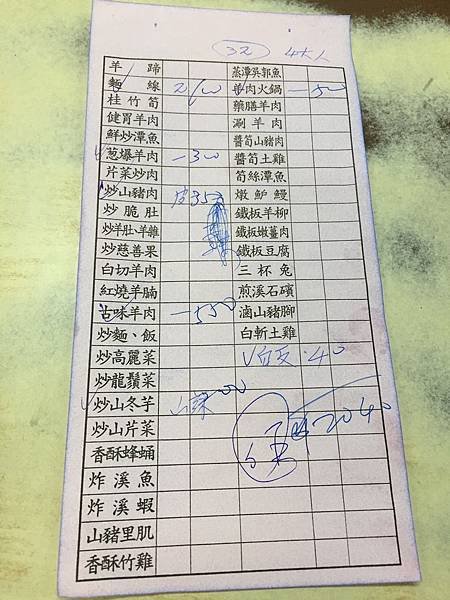 32 4大人
羊蹄 蒸潭吳郭魚
麵線 2/00 羊肉火鍋
桂竹筍 藥膳羊肉
健胃羊肉 涮羊肉
鮮炒潭魚 醬筍山豬肉
葱爆羊肉 一300 醬筍土雞
芹菜炒肉 筍絲潭魚
炒山豬肉 皮350 燉鱸鰻
炒脆肚 鐵板羊柳
炒羊肚、羊雜 鐵板嫩薑肉
炒慈善果 鐵板豆腐
白切羊肉 三杯兔
紅燒羊腩 煎溪石磧
古味羊肉 一550 滷山豬腳
炒麵、飯 白斬土雞
炒高麗菜 V白反:40
炒龍鬚菜
炒山冬芋
炒山芹菜 2040
香酥蜂蛹
炸溪魚
炸溪蝦
山豬里肌
香酥竹雞